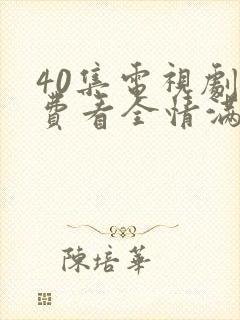 40集電視劇
費看全情滿
陳培華